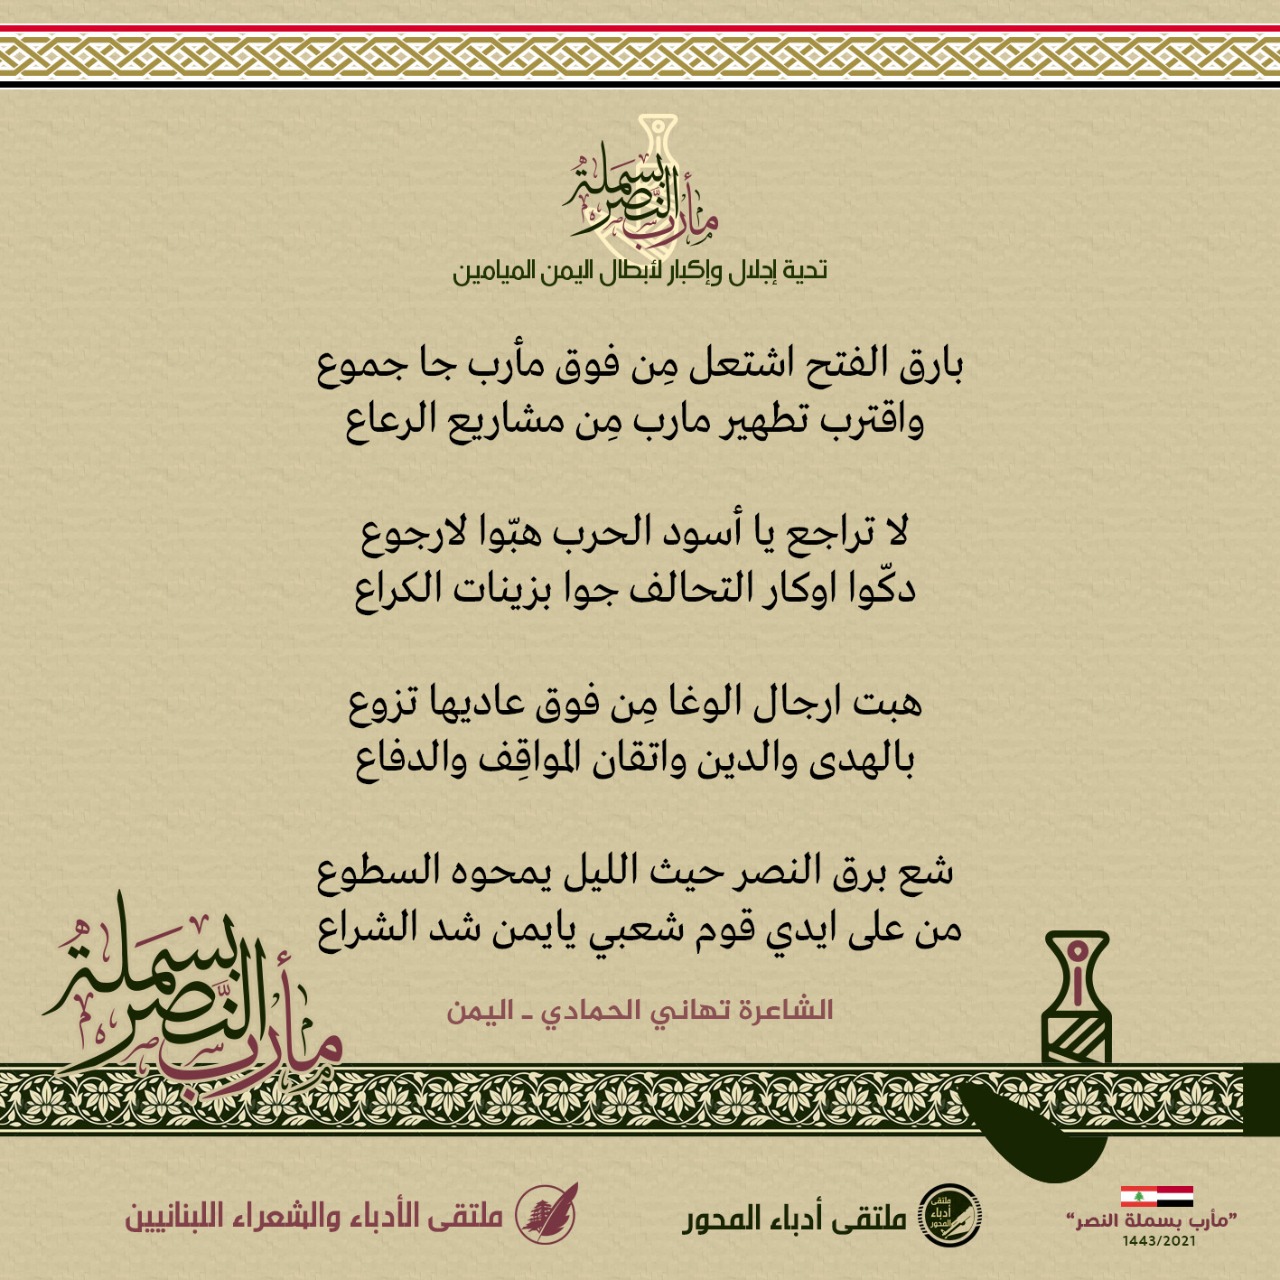 مأرب بسملة النصر
تحية إجلال وإكبار لأبطال اليمن الميامين
بارق الفتح اشتعل مِن فوق مأرب جا جموع
واقترب تطهير مارب مِن مشاريع الرعاع
لا تراجع يا أسود الحرب هبّوا لارجوع
دكّوا اوكار التحالف جوا بزينات الكراع
هبت ارجال الوغا مِن فوق عاديها تزوع
بالهدى والدين واتقان المواقِف والدفاع
شع برق النصر حيث الليل يمحوه السطوع
من على ايدي قوم شعبي يايمن شد الشراع
الشاعرة تهاني الحمادي ـ اليمن
مأرب بسملة النصر
ملتقى الأدباء والشعراء اللبنانيين
ملتقى أدباء المحور
ملتقى أدباء المحور
”مأرب بسملة النصر“
1443/2021